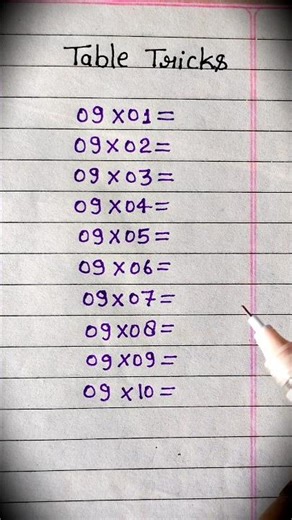 Table Tricks
09 X 01 =
09 X 02 =
09 X 03 =
09 X 04 =
09 X 05 =
09 X 06 =
09 X 07 =
09 X 08 =
09 X 09 =
09 X 10 =